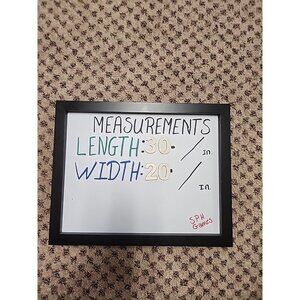 MEASUREMENTS
LENGTH: 30- / IN
WIDTH: 20- / IN
SPH
Games